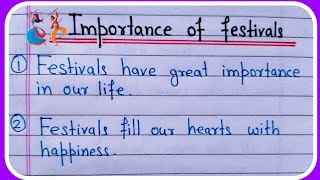 Importance of festivals
① Festivals have great importance
in our life.
② Festivals fill our hearts with
happiness.